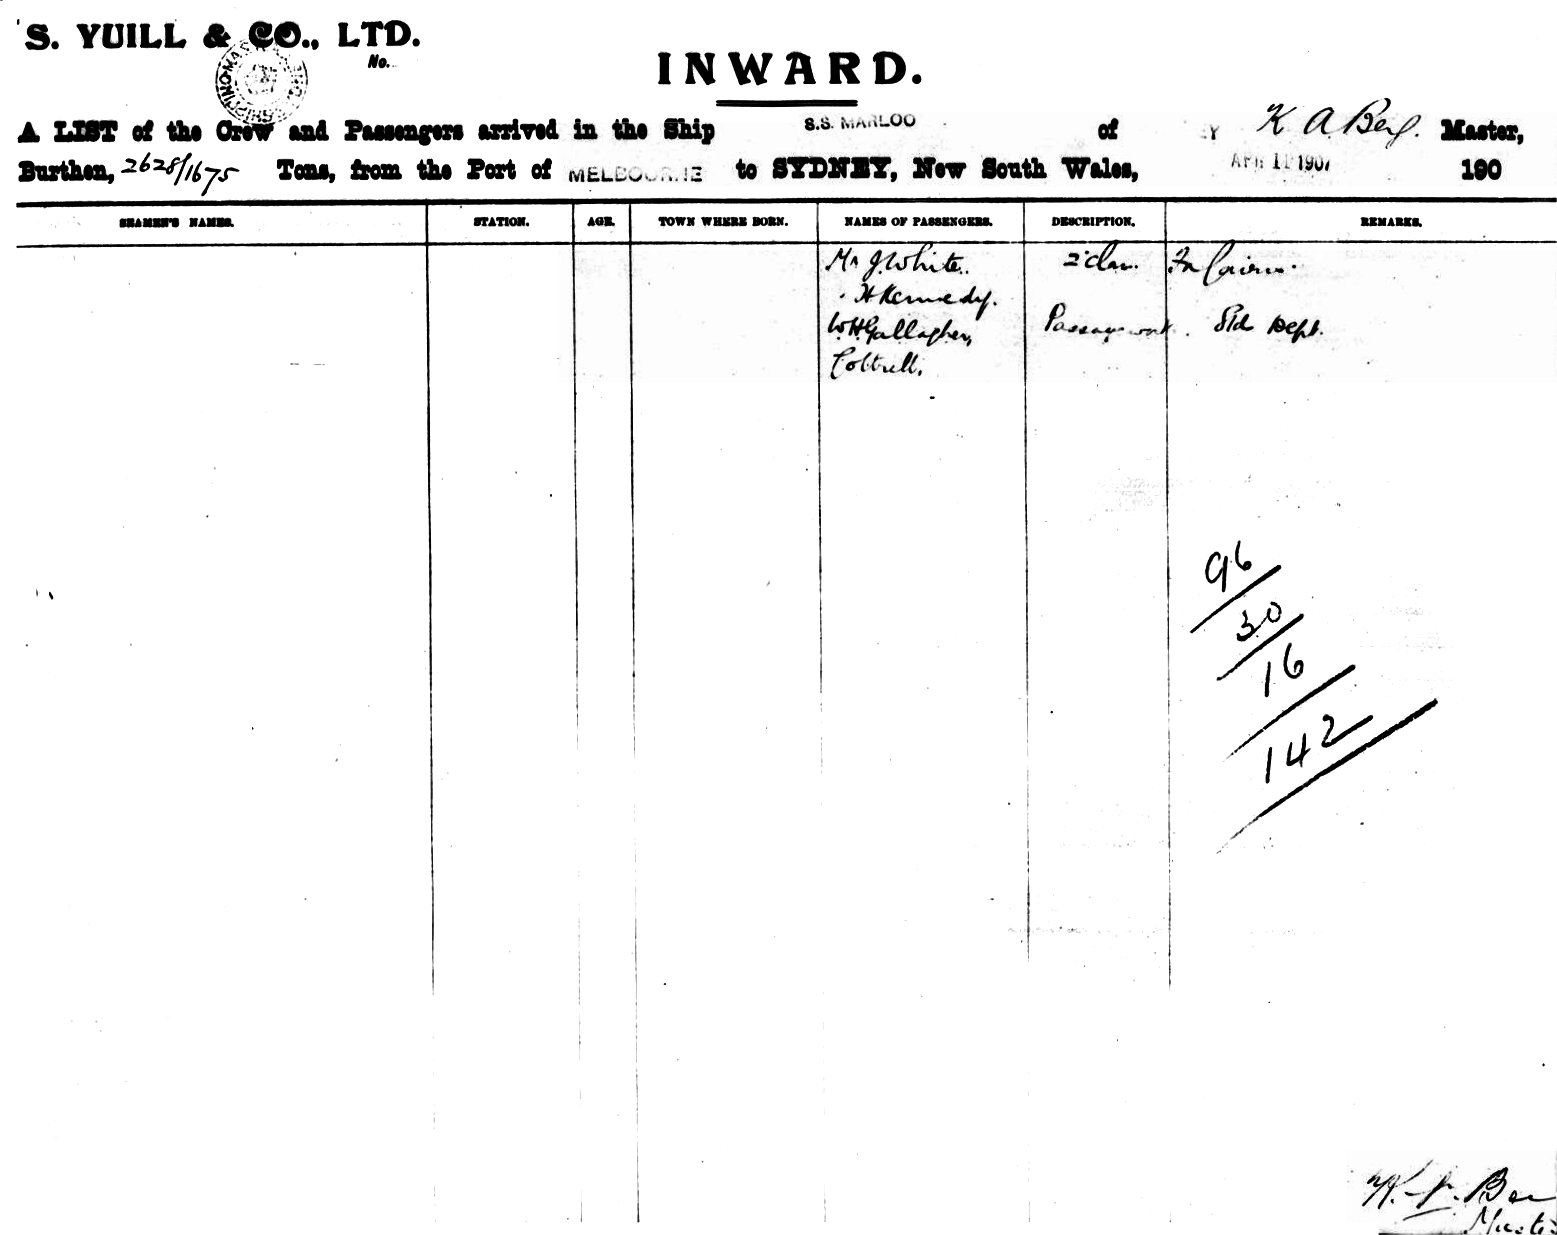 S. YUILL & CO., LTD.
No.
INWARD.
A LIST of the Crew and Passengers arrived in the Ship S.S. MARLOO of K A Berg. Master,
Burthen, 2628/1675 Tons, from the Port of MELBOURNE to SYDNEY, New South Wales, APR 11 1907 190
SEAMEN'S NAMES. STATION. AGE. TOWN WHERE BORN. NAMES OF PASSENGERS. DESCRIPTION. REMARKS.
Mr J. White. 2 Clas.
H Kennedy.
W.H. Gallagher, Passage work. Std Dept.
Cottrell.
96
30
16
142